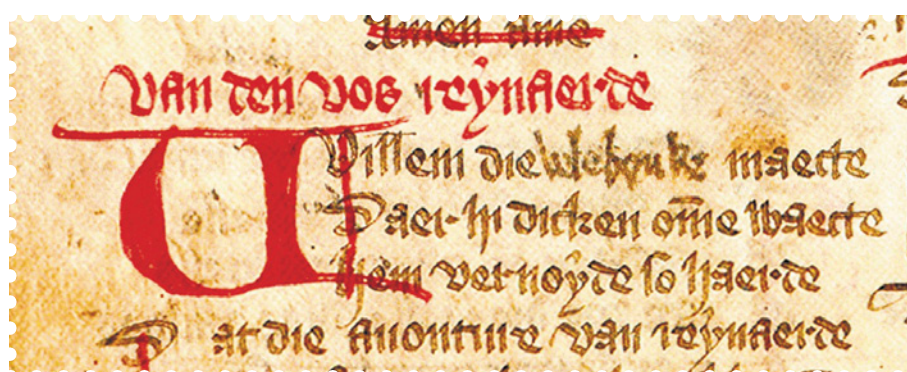 Amen ame
van den vos reynaerde
Willem die vele bouke maecte
Daer hi dicken om̄e waecte
hem vernoyde so haerde
Dat die auonture van reynaerde